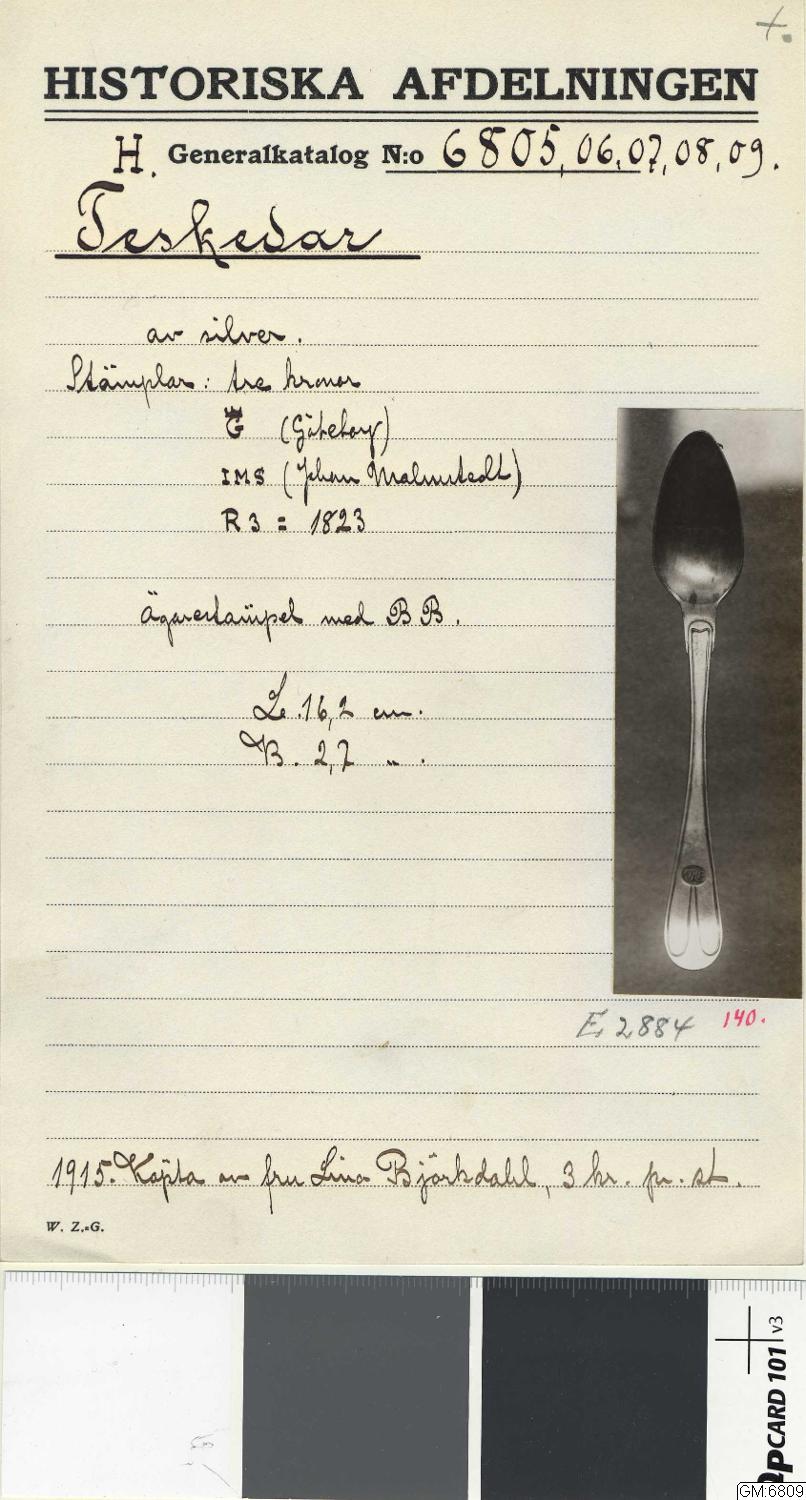 +.
HISTORISKA AFDELNINGEN
H. Generalkatalog N:o 6805, 06, 07, 08, 09.
Teskedar
av silver.
Stämplar: tre kronor
G (Göteborg)
IMS (Johan Malmstedt)
R3 = 1823
Ägarestämpel med BB.
L. 16,2 cm.
B. 2,7 „ .
E 2884 140.
1915. Köpta av fru Lina Björkdahl, 3 kr. pr. st.
W. Z.=G.
QPCARD 101 v3
GM:6809